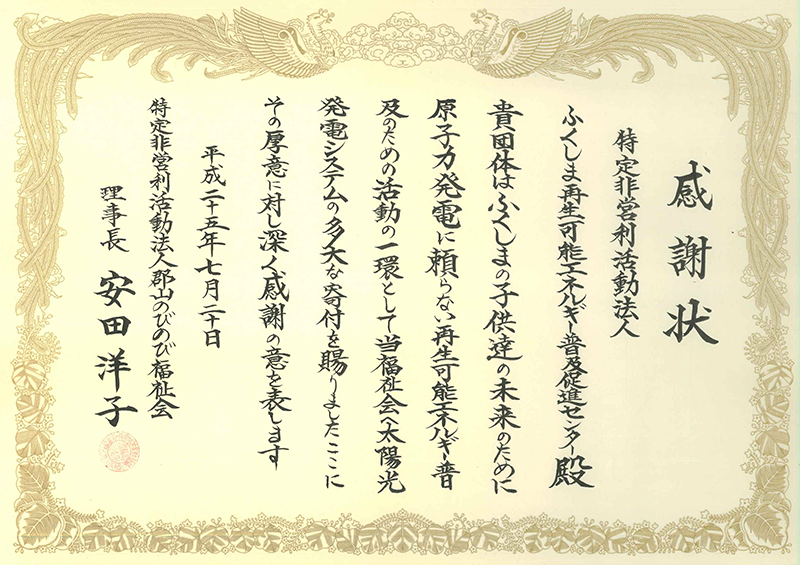 感謝状
特定非営利活動法人
ふくしま再生可能エネルギー普及促進センター殿
貴団体はふくしまの子供達の未来のために
原子力発電に頼らない再生可能エネルギー普
及のための活動の一環として当福祉会へ太陽光
発電システムの多大な寄付を賜りましたここに
その厚意に対し深く感謝の意を表します
平成二十五年七月二十日
特定非営利活動法人郡山のびのび福祉会
理事長 安田洋子